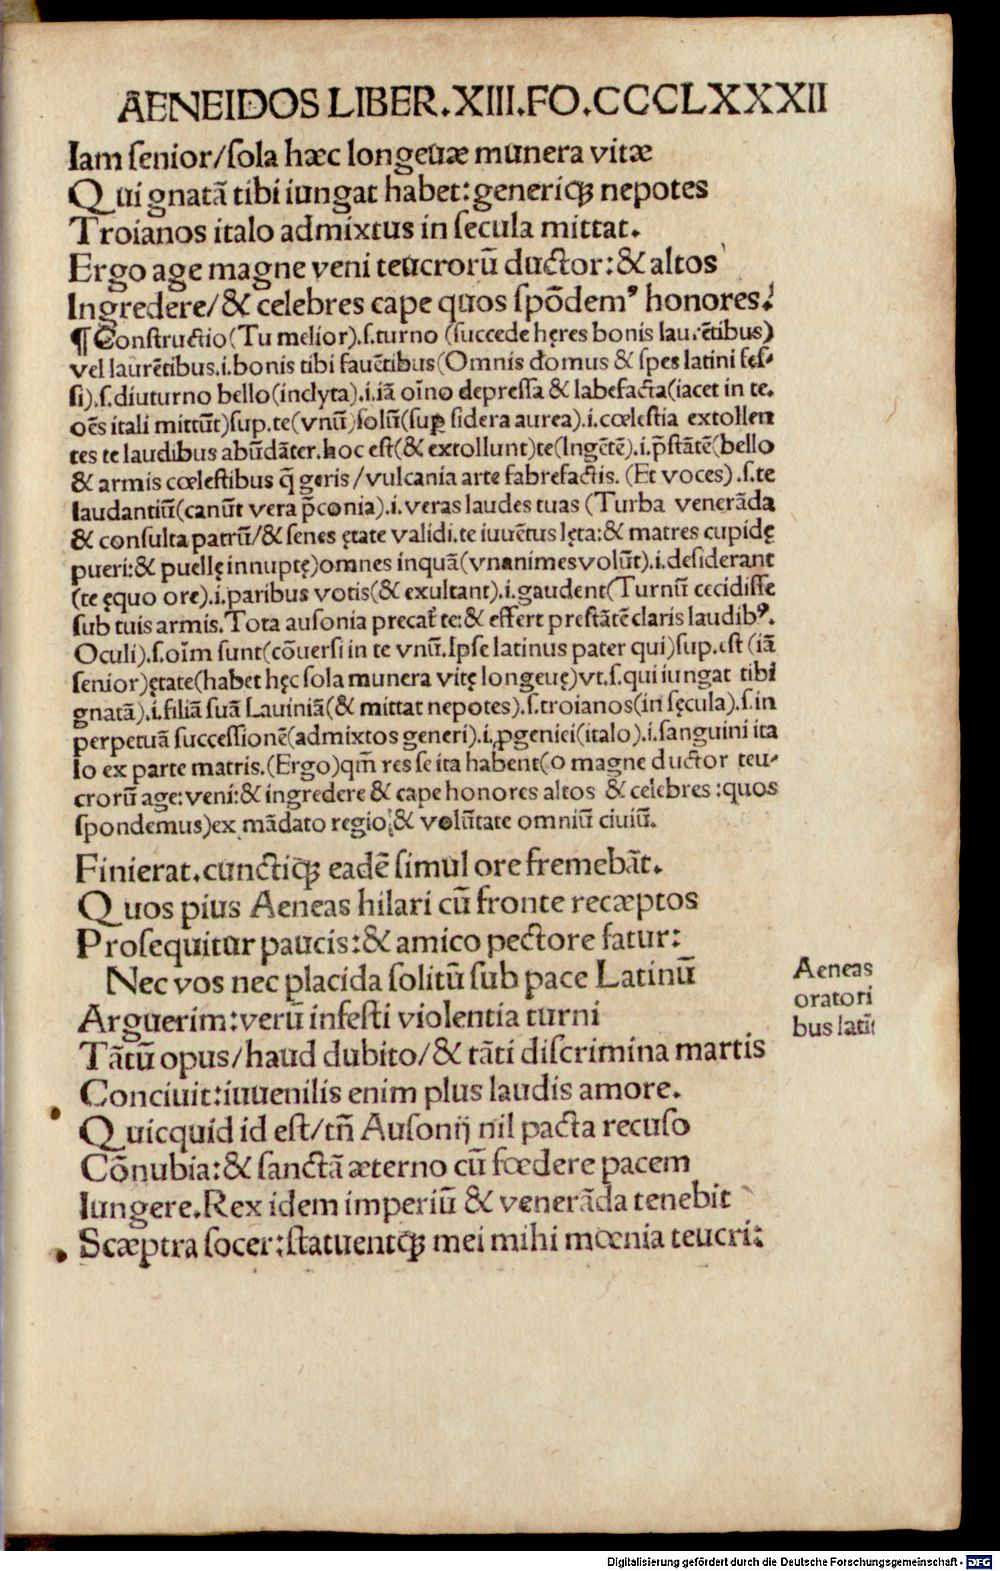 AENEIDOS LIBER.XIII.FO.CCCLXXXII
Iam senior/sola hæc longeuæ munera vitæ
Qui gnatā tibi iungat habet:generiqꝫ nepotes
Troianos italo admixtus in secula mittat.
Ergo age magne veni teucrorū ductor:& altos
Ingredere/& celebres cape quos spōdemꝰ honores.
¶ Constructio(Tu melior).s.turno (succede hęres bonis laurētibus)
vel laurētibus.i.bonis tibi fauētibus(Omnis domus & spes latini fes-
si).s.diuturno bello(inclyta).i.iā oīno depressa & labefacta(iacet in te.
oēs itali mittūt)sup.te(vnū)solū(suꝑ sidera aurea).i.cœlestia extollen
tes te laudibus abūdāter.hoc est(& extollunt)te(Ingētē).i.p̄stātē(bello
& armis cœlestibus q̄ geris/vulcania arte fabrefactis. (Et voces).s.te
laudantiū(canūt vera p̄conia).i.veras laudes tuas (Turba venerāda
& consulta patrū/& senes ętate validi.te iuuētus lęta:& matres cupidę
pueri:& puellę innuptę)omnes inquā(vnanimes volūt).i.desiderant
(te ęquo ore).i.paribus votis(& exultant).i.gaudent(Turnū cecidisse
sub tuis armis.Tota ausonia precat᷑ te:& effert prestātē claris laudibꝰ.
Oculi).s.oīm sunt(cōuersi in te vnū.Ipse latinus pater qui)sup.est (iā
senior)ętate(habet hęc sola munera vitę longeuę)vt.s.qui iungat tibi
gnatā).i.filiā suā Lauiniā(& mittat nepotes).s.troianos(in sęcula).s.in
perpetuā successionē(admixtos generi).i.ꝓgeniei(italo).i.sanguini ita
lo ex parte matris.(Ergo)qm̄ res se ita habent(o magne ductor teu-
crorū age:veni:& ingredere & cape honores altos & celebres :quos
spondemus)ex mādato regio:& volūtate omniū ciuiū.
Finierat.cunctiqꝫ eadē simul ore fremebāt.
Quos pius Aeneas hilari cū fronte recæptos
Prosequitur paucis:& amico pectore fatur:
Nec vos nec placida solitū sub pace Latinū
Arguerim:verū infesti violentia turni
Tātū opus/haud dubito/& tāti discrimina martis
Conciuit:iuuenilis enim plus laudis amore.
Quicquid id est/tn̄ Ausonij nil pacta recuso
Cōnubia:& sanctā æterno cū fœdere pacem
Iungere.Rex idem imperiū & venerāda tenebit
Scæptra socer:statuentqꝫ mei mihi mœnia teucri:
Aeneas
oratori
bus latīs
Digitalisierung gefördert durch die Deutsche Forschungsgemeinschaft - DFG